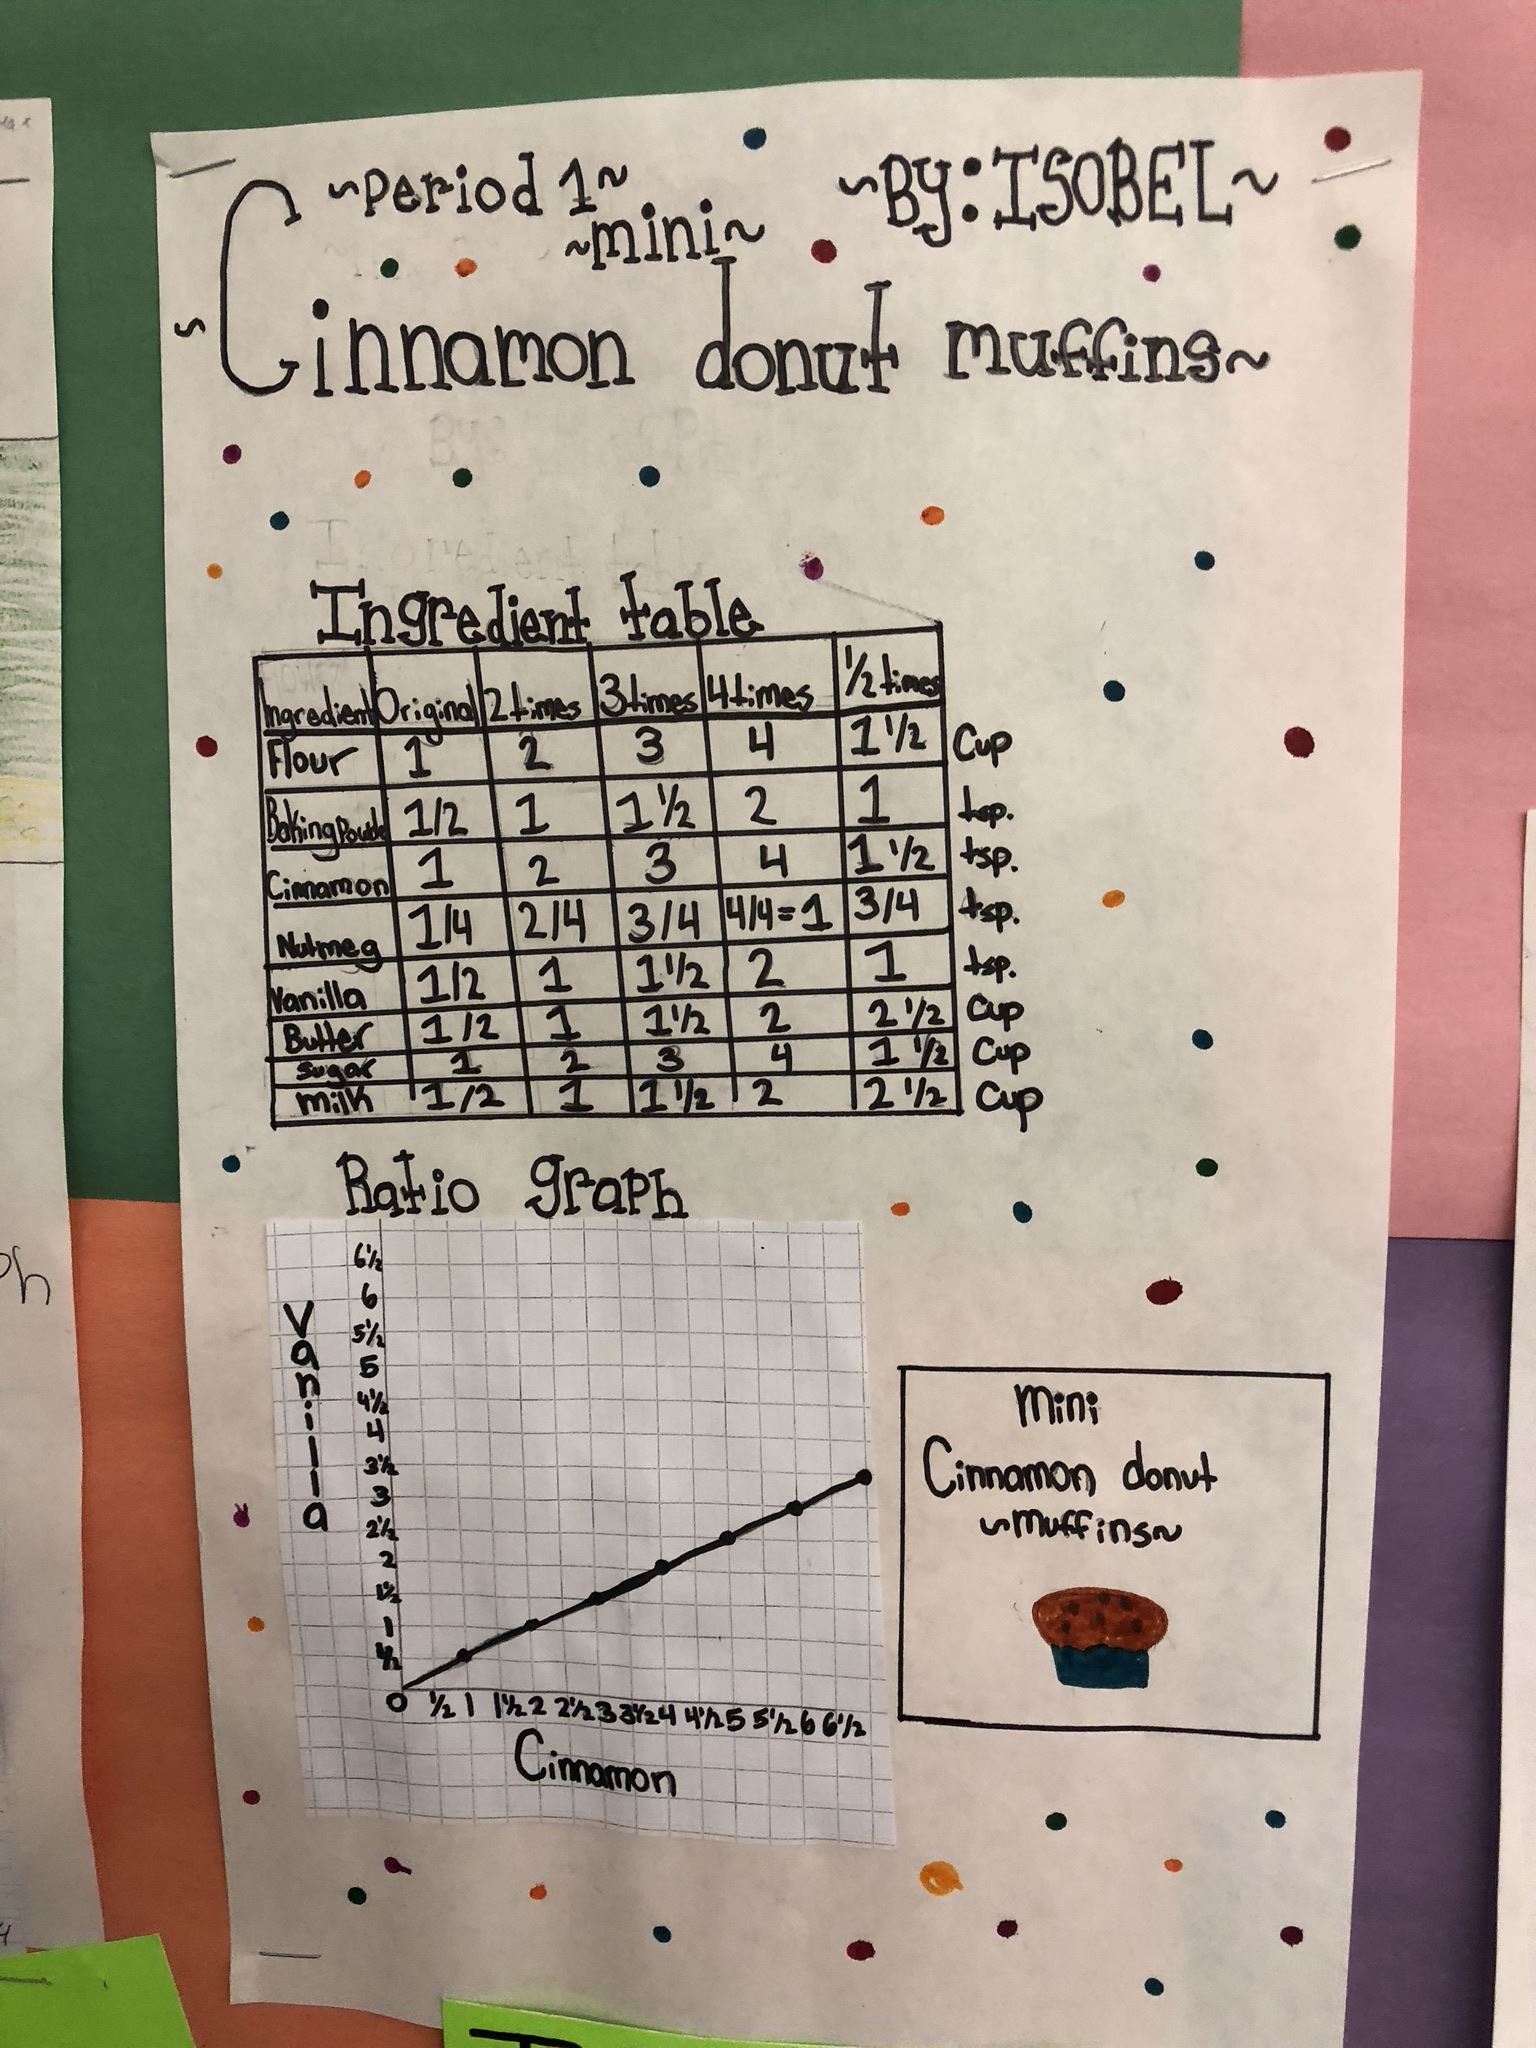 ~Period 1~
~BY: ISOBEL~
~mini~
~Cinnamon donut muffins~
Ingredient table
Ingredient Original 2 times 3 times 4 times 1/2 times
Flour 1 2 3 4 1 1/2 Cup
Baking Powde 1/2 1 1 1/2 2 1 tsp.
Cinnamon 1 2 3 4 1 1/2 tsp.
Nutmeg 1/4 2/4 3/4 4/4=1 3/4 tsp.
Vanilla 1/2 1 1 1/2 2 1 tsp.
Butter 1/2 1 1 1/2 2 2 1/2 Cup
Sugar 1 2 3 4 1 1/2 Cup
Milk 1/2 1 1 1/2 2 2 1/2 Cup
Ratio graph
Vanilla
6 1/2
6
5 1/2
5
4 1/2
4
3 1/2
3
2 1/2
2
1 1/2
1
1/2
0 1/2 1 1 1/2 2 2 1/2 3 3 1/2 4 4 1/2 5 5 1/2 6 6 1/2
Cinnamon
Mini
Cinnamon donut
~muffins~